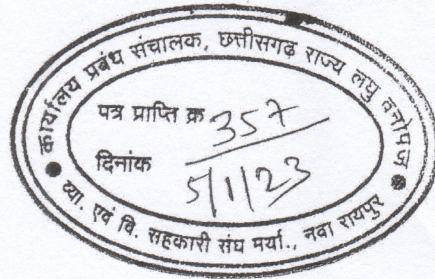 कार्यालय प्रबंध संचालक, छत्तीसगढ़ राज्य लघु वनोपज
पत्र प्राप्ति क्र 357
दिनांक 5/1/23
व्या. एवं वि. सहकारी संघ मर्या., नवा रायपुर